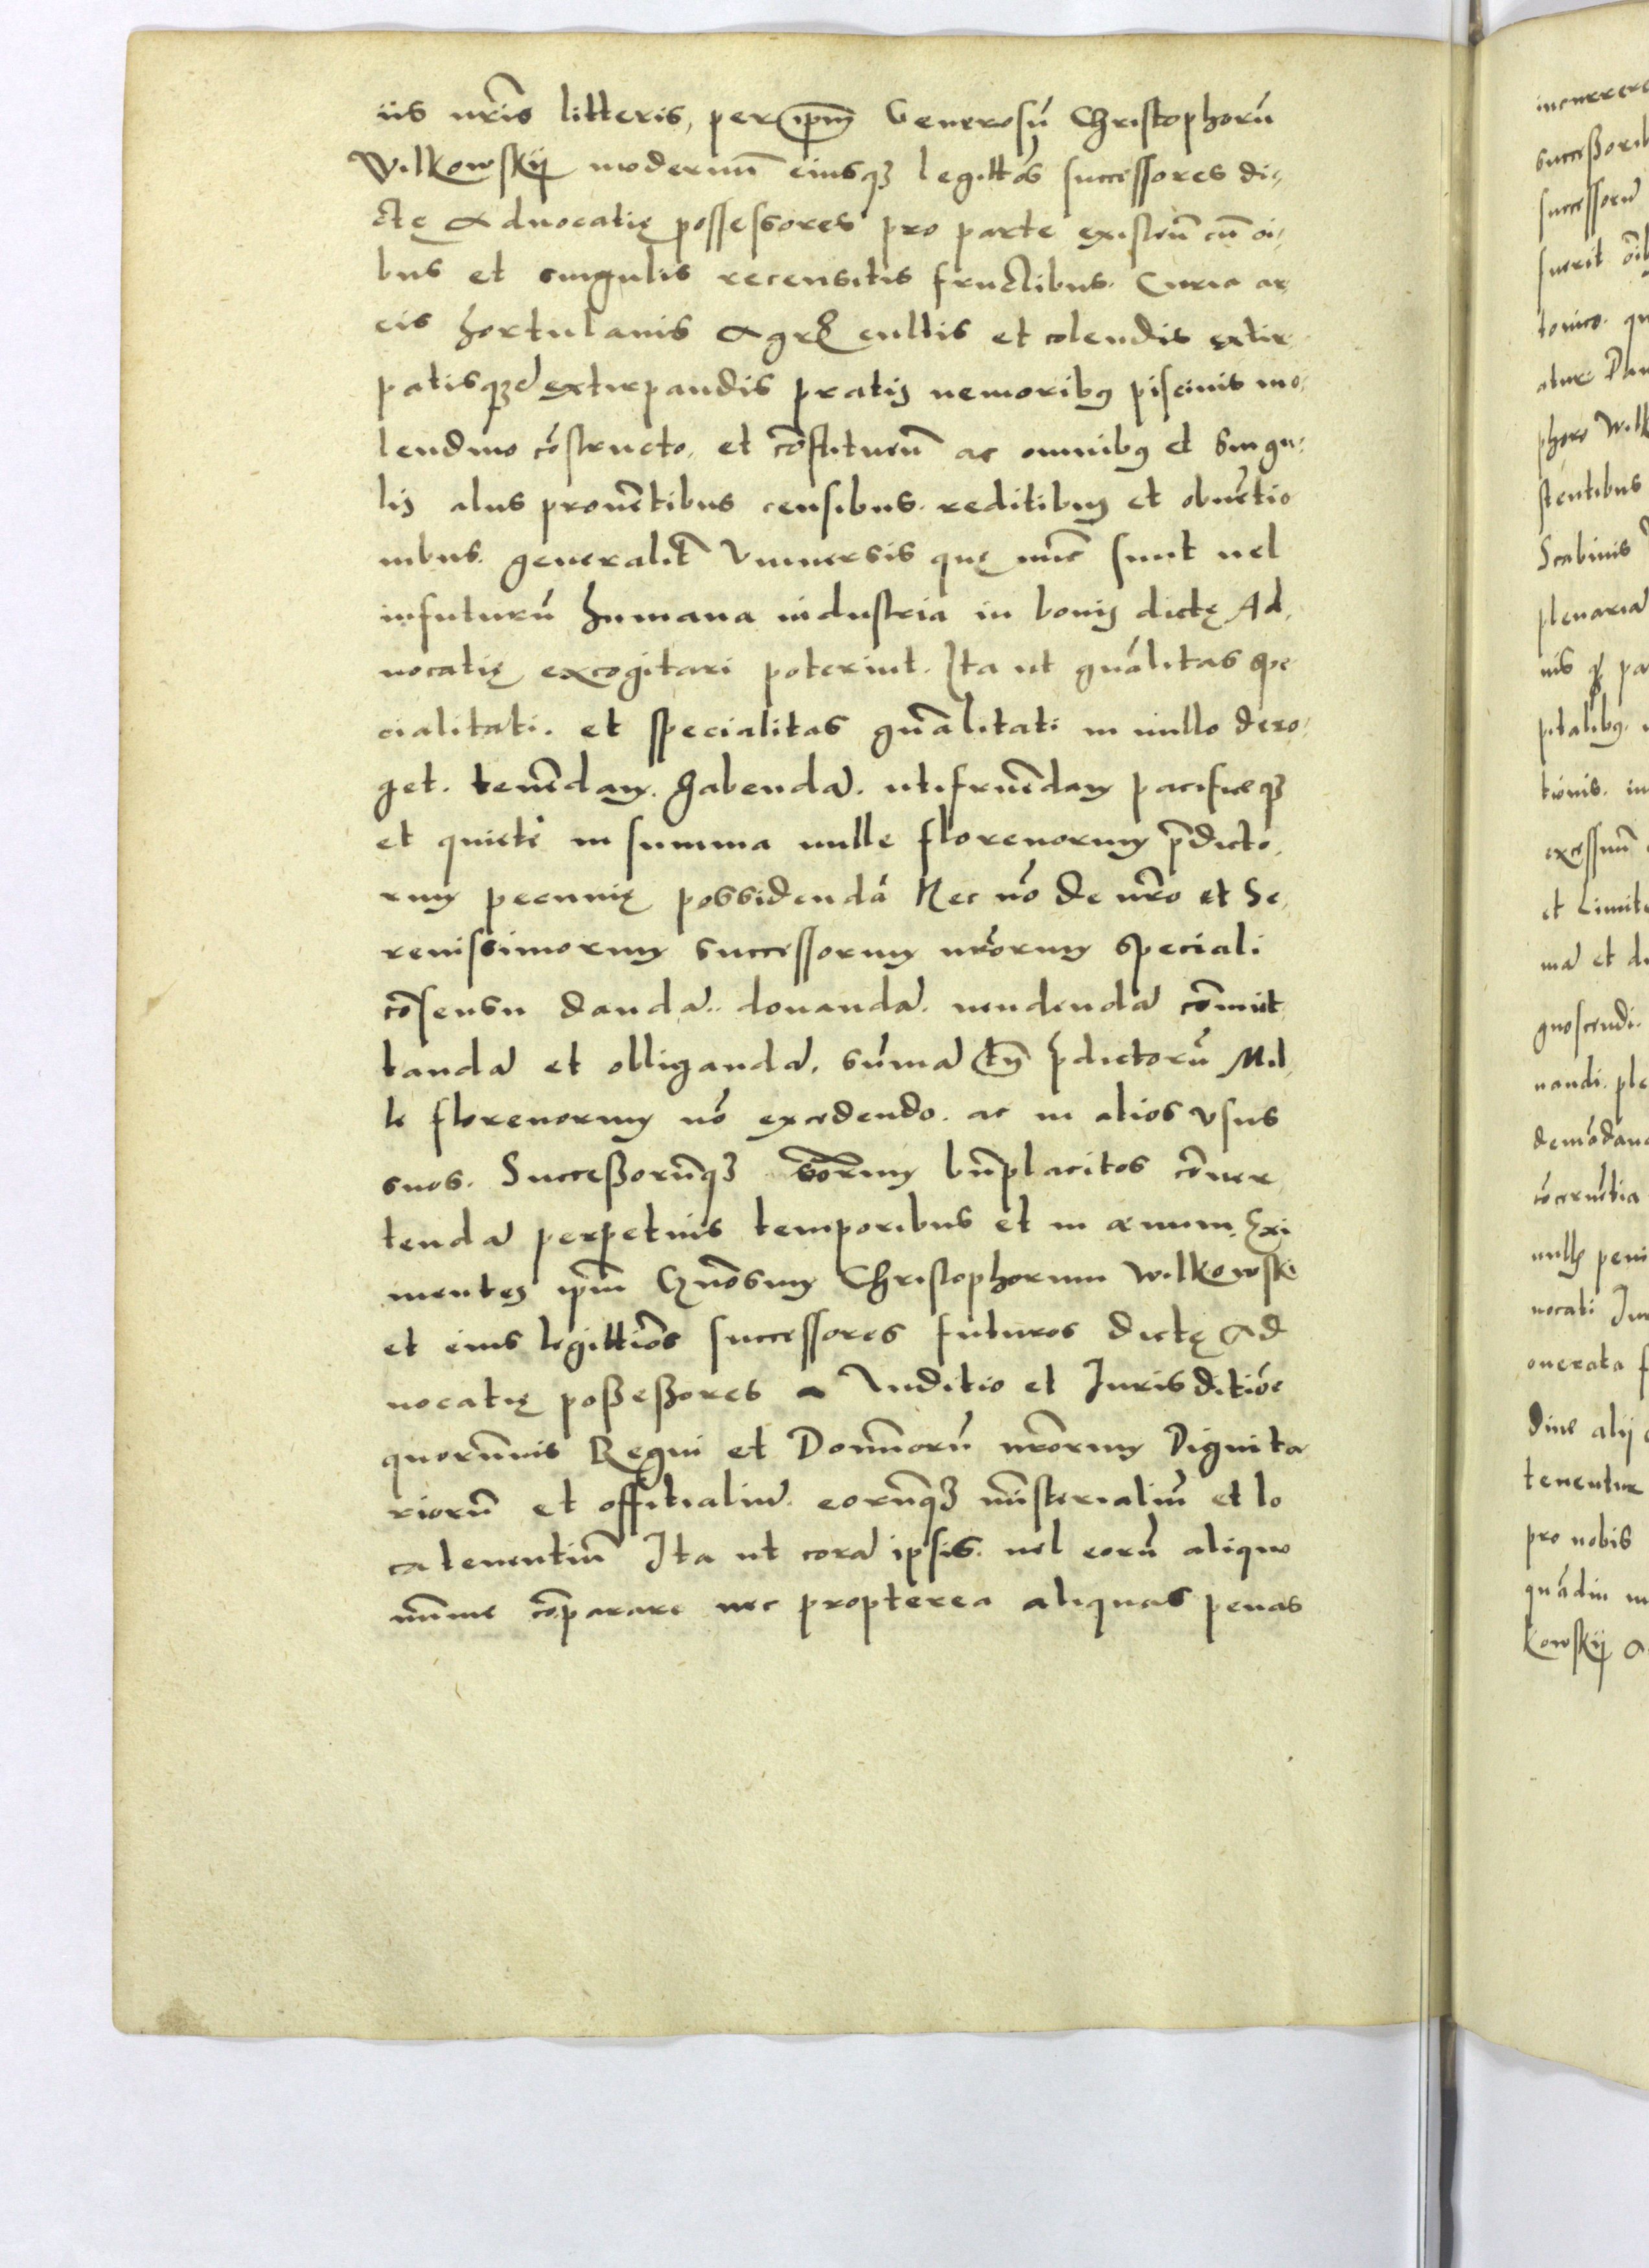 iis nr̃is litteris, per ip̃m Generosũ Christophorũ
Wilkowskij modernũ eiusq3 legitt̃os successores di-
ctę Aduocatię possessores pro parte existeñ cũ oi-
bus et singulis recensitis fructibus. Curia ar
eis hortulanis Agr̃ cultis et colendis extir
patisq3 extirpandis pratis nemoribus piscinis mo-
lendino cõstructo, et cõstituen̄ ac omnibus et singu-
lis aliis prouẽtibus censibus. reditibus et obuẽtio
nibus. generalit̃ Vniuersis quę nũc sunt uel
infuturũ humana industria in bonis dictę Ad-
uocatię excogitari poterint. Ita ut gnãlitas spe
cialitati. et specialitas gnãlitati in nullo dero-
get. tenẽdam. habendã. utifruẽdam pacificeq3
et quietè in summa mille florenorum p̃dicto-
rum pecunię possidendã Nec nõ de nr̃o et Se-
renissimorum successorum nr̃orum speciali
cõsensu dandã. donandã. uendendã cõmut-
tandã et obligandã. sũmã tñ p̃dictorũ Mil-
le florenorum nõ excedendo. ac in alios vsus
suos. Successorũq3 suorum bñplacitos cõuer
tendã perpetuis temporibus et in æuum. Exi
mentes ip̃m Gnõsum Christophorum Wilkowski
et eius legittiõs successores futuros dictę Ad
uocatię possessores a Iuditio et Iurisditiõe
quorũuis Regni et Dominiorũ nr̃orum Dignita-
riorũ et offitialiũ. eorũq3 mĩsterialiũ et lo
catenentiũ Ita ut corã ipsis. uel eorũ aliquo
mĩme cõparare nec propterea aliquas penas
incurrere
successorib
successorũ
fuerit õib
tonico. qu
atur Dan
phoro Wilk
stentibus
Scabinis
plenariã
nis pa
pitalibus.
tionis. in
excessuũ
et Limite
mã et di
gnoscendi.
nandi. ple
demãdan
cõcernẽtia
nullis peni
uocati Iur
onerata f
diuo alij
tenentur
pro nobis
quãdiu
kowskij A